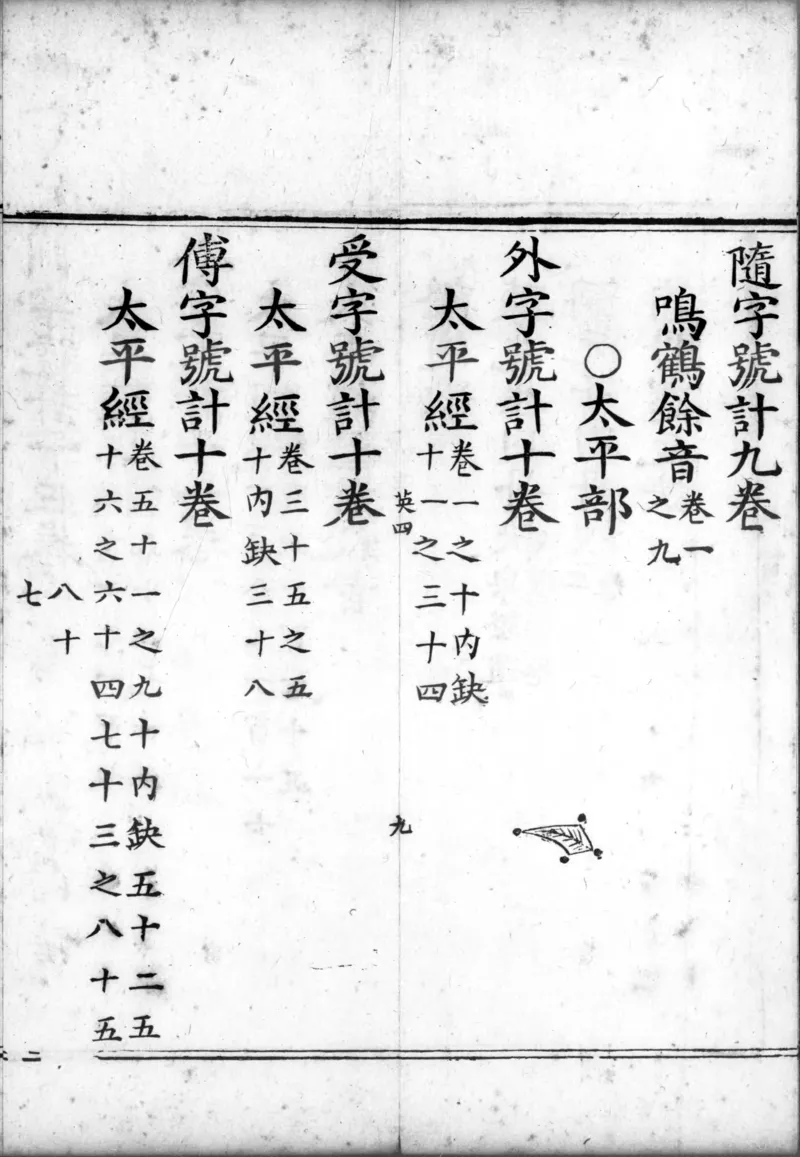 隨字號計九卷
鳴鶴餘音卷一
之九
○太平部
外字號計十卷
太平經卷一之十内缺
十一之三十四
英四 九
受字號計十卷
太平經卷三十五之五
十内缺三十八
傅字號計十卷
太平經卷五十一之九十内缺五十二五
十六之六十四七十三之八十五
八十
七
二